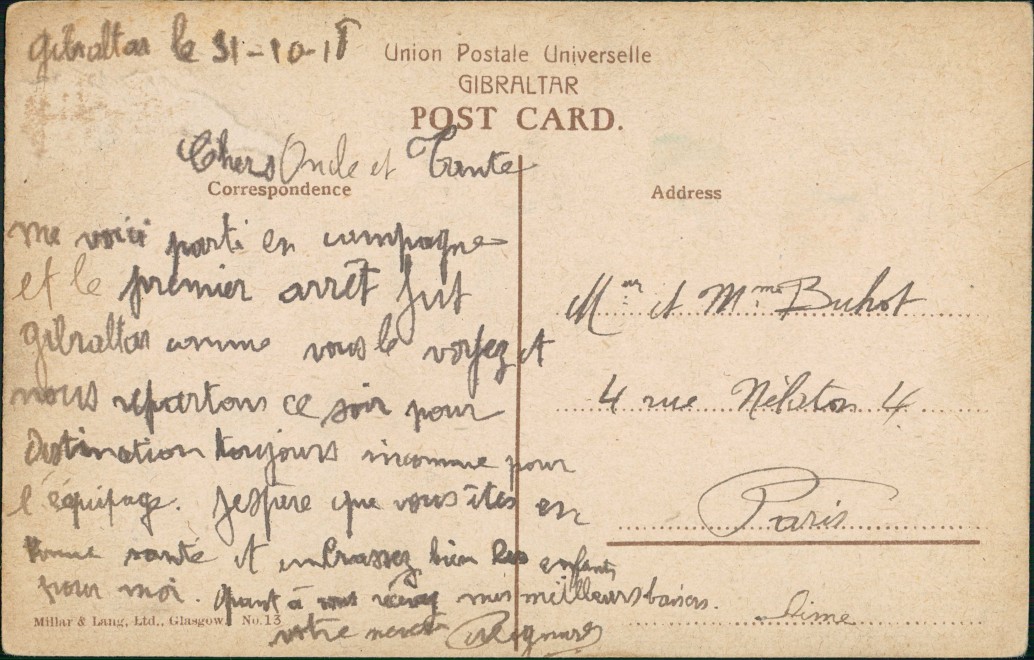 Gibraltar le 31-10-18
Union Postale Universelle
GIBRALTAR
POST CARD.
Chers Oncle et Tante
Correspondence
Address
me voici parti en campagne
et le premier arrêt fut
Gibraltar comme vous le voyez et
nous repartons ce soir pour
Destination toujours inconnue pour
l'équipage. J'espère que vous êtes en
bonne santé et embrassez bien les enfants
pour moi. Quant à vous recevez mes meilleurs baisers.
votre neveu
Mr et Mme Buhot
4 rue Nélaton 4
Paris
Millar & Lang, Ltd., Glasgow. No.13